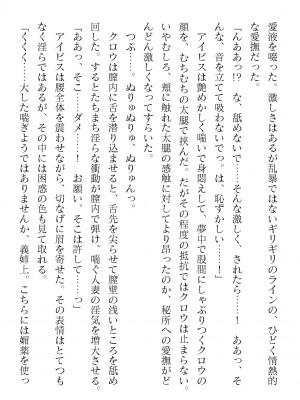 愛液を啜った。激しさはあるが乱暴ではないギリギリのラインの、ひどく情熱的
な愛撫だった。
「んああっ!?　な、舐めないで……そんな激しく、されたら……！　ああっ、そ
んな、音を立てて吸わないでっ。は、恥ずかしい……！」
アイビスは艶めかしく喘いで身悶えして、夢中で股間にしゃぶりつくクロウの
顔を、むちむちの太腿で挟んだ。だがその程度の抵抗ではクロウは止まらない。
いやむしろ、頬に触れた太腿の感触に対してより昂ったのか、秘所への愛撫がど
んどん激しくなってすらいた。
つぷっ……。ぬりゅぬりゅ、ぬりゅんっ。
クロウは膣内に舌を潜り込ませると、舌先を尖らせて膣壁の浅いところを舐め
回す。するとたちまち淫らな衝動が膣内で弾け、喘ぐ人妻の淫気を増大させる。
「ああっ、そこ……ダメ……！　お願い、そこは許して……っ」
アイビスは腰全体を震わせながら、切なげに眉を寄せた。その表情はとてつも
なく淫らではあるが、その中には困惑の色も見て取れる。
「くくく……大した喘ぎようではありませんか、義姉上。こちらには媚薬を使っ